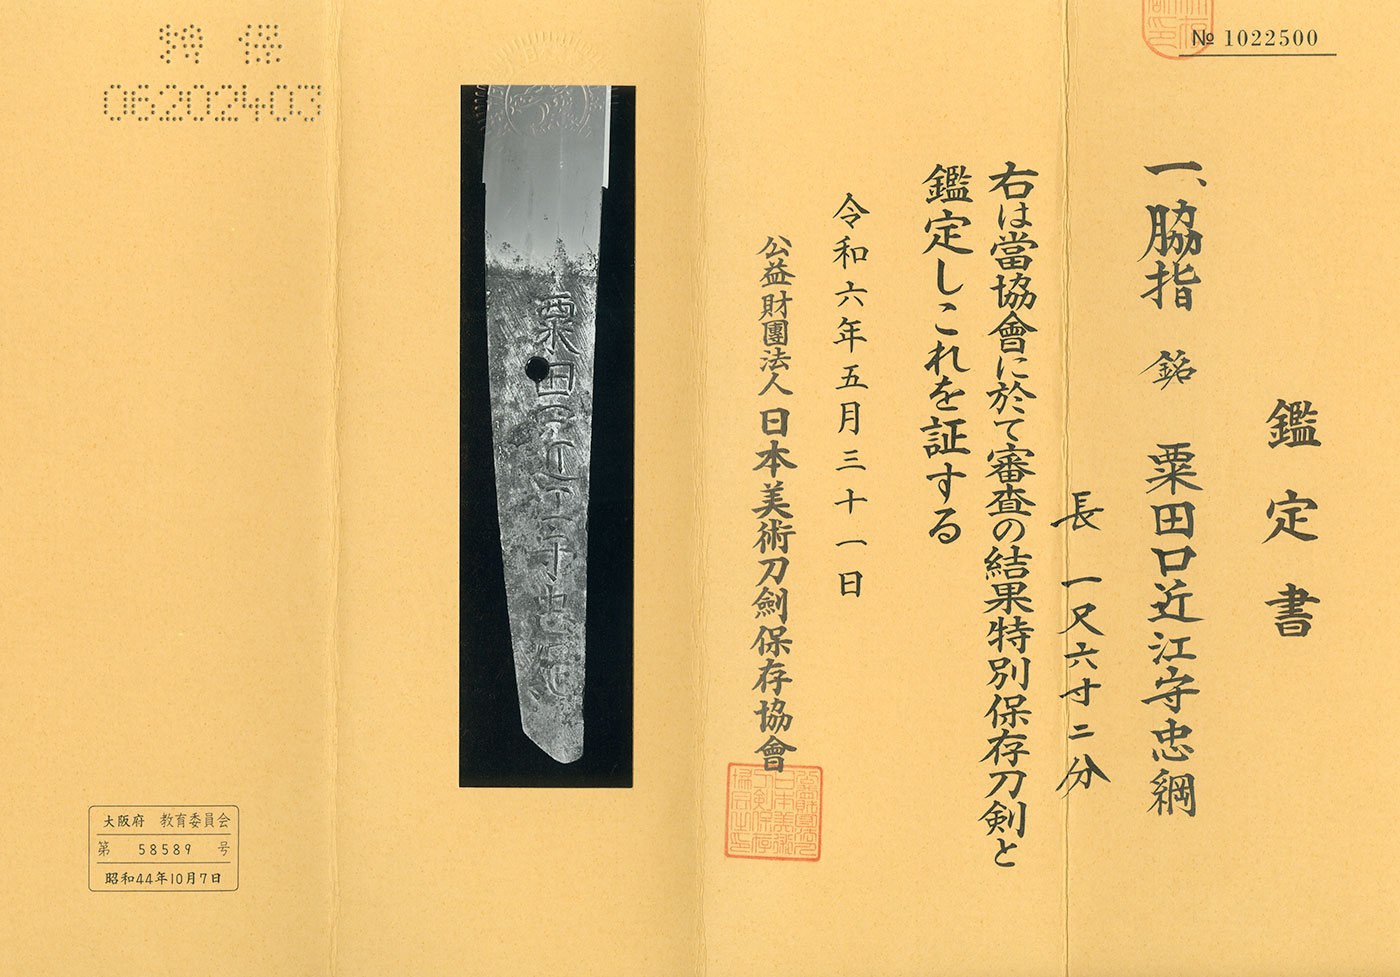 № 1022500
鑑定書
一、脇指 銘 粟田口近江守忠綱
長 一尺六寸二分
右は當協會に於て審査の結果特別保存刀剣と
鑑定しこれを証する
令和六年五月三十一日
公益財團法人 日本美術刀劍保存協會
粟田口近江守忠綱
特 保
06202403
大阪府 教育委員会
第 58589 号
昭和44年10月7日